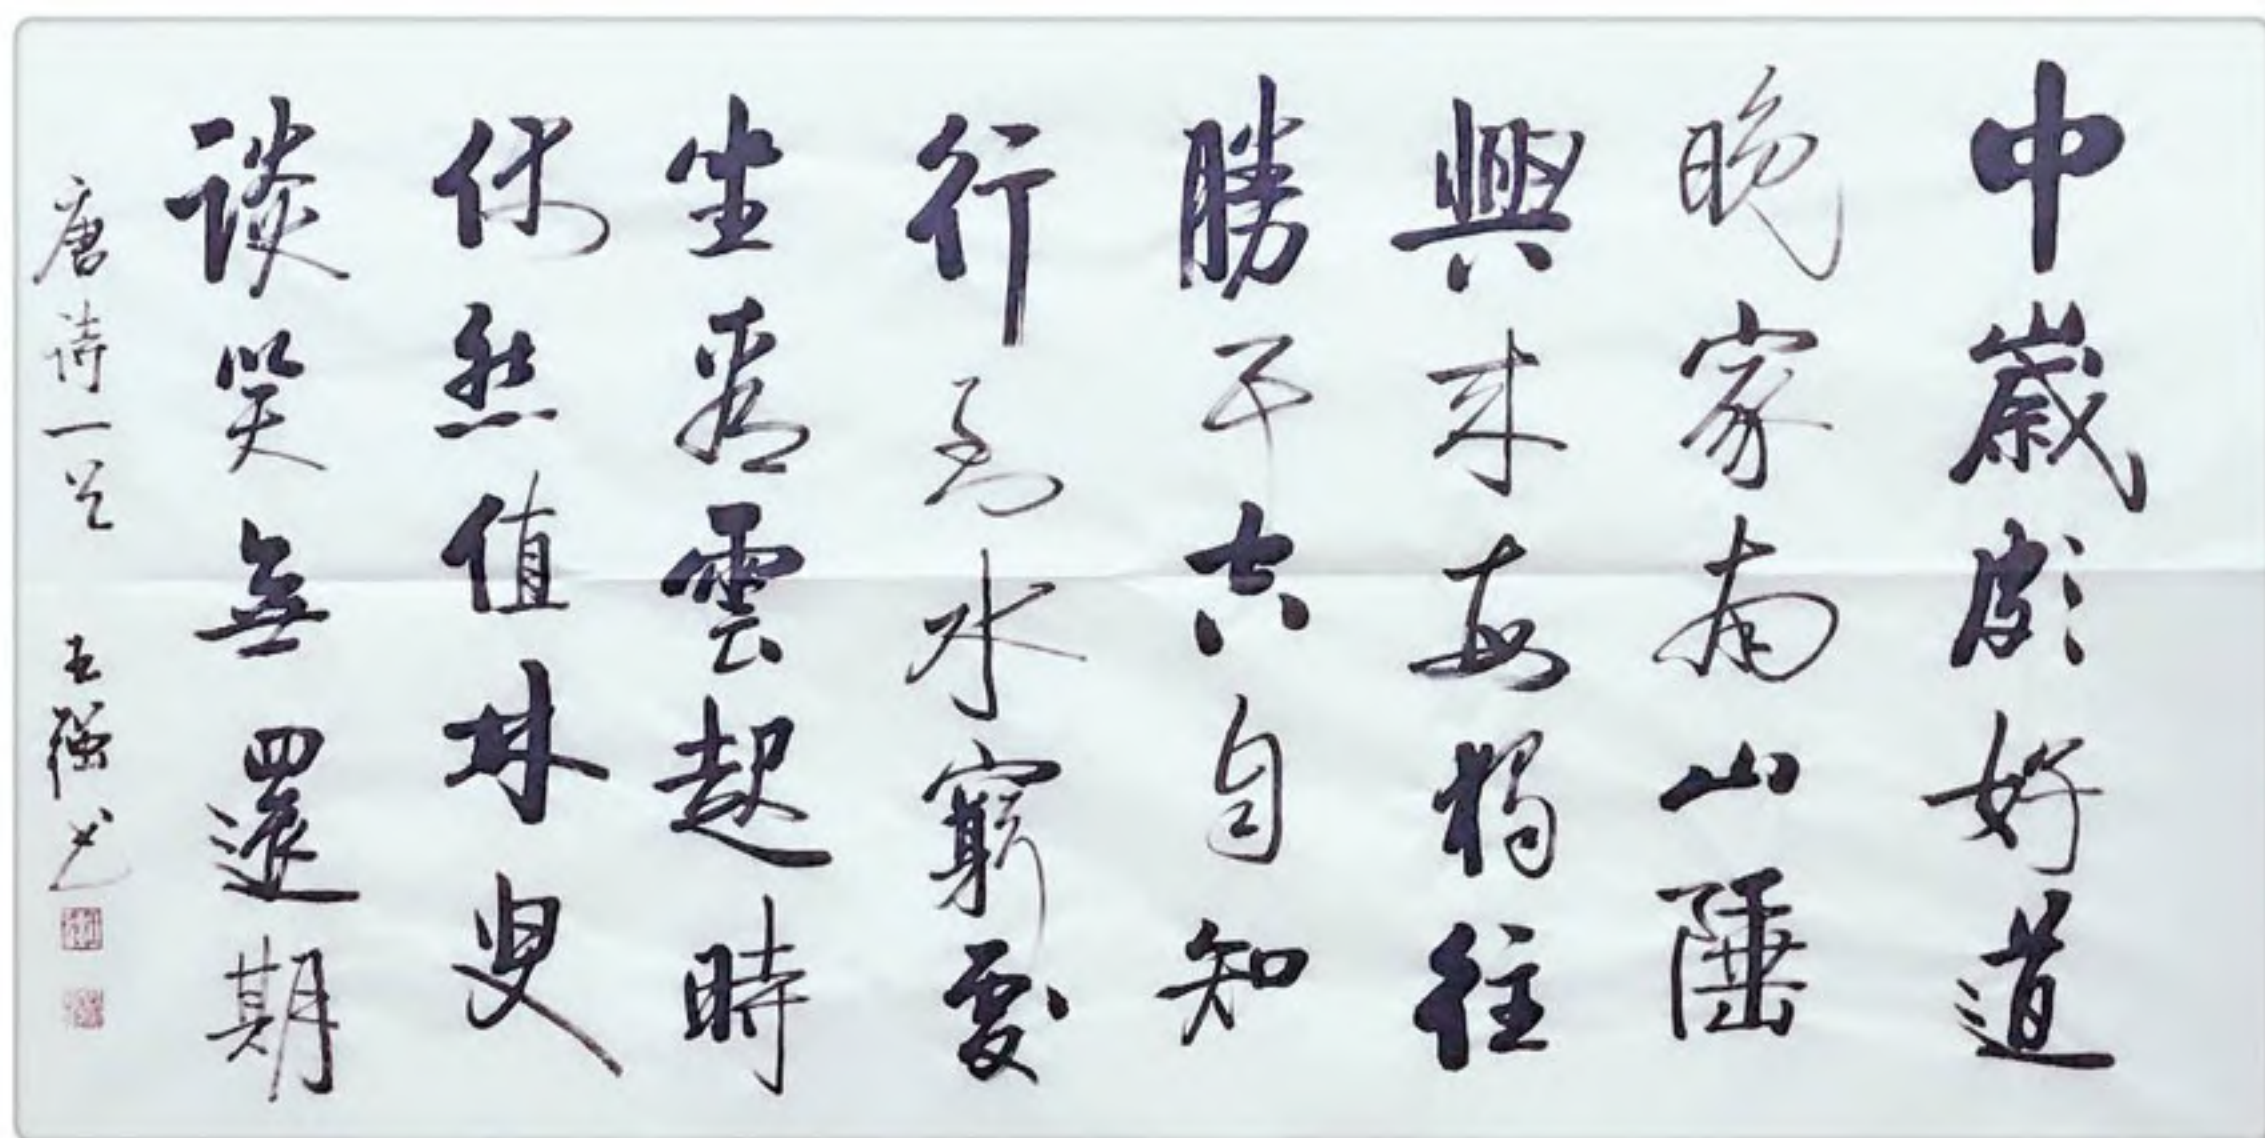 中歲頗好道
晚家南山陲
興來每獨往
勝事空自知
行到水窮處
坐看雲起時
偶然值林叟
談笑無還期
唐詩一首 王強書